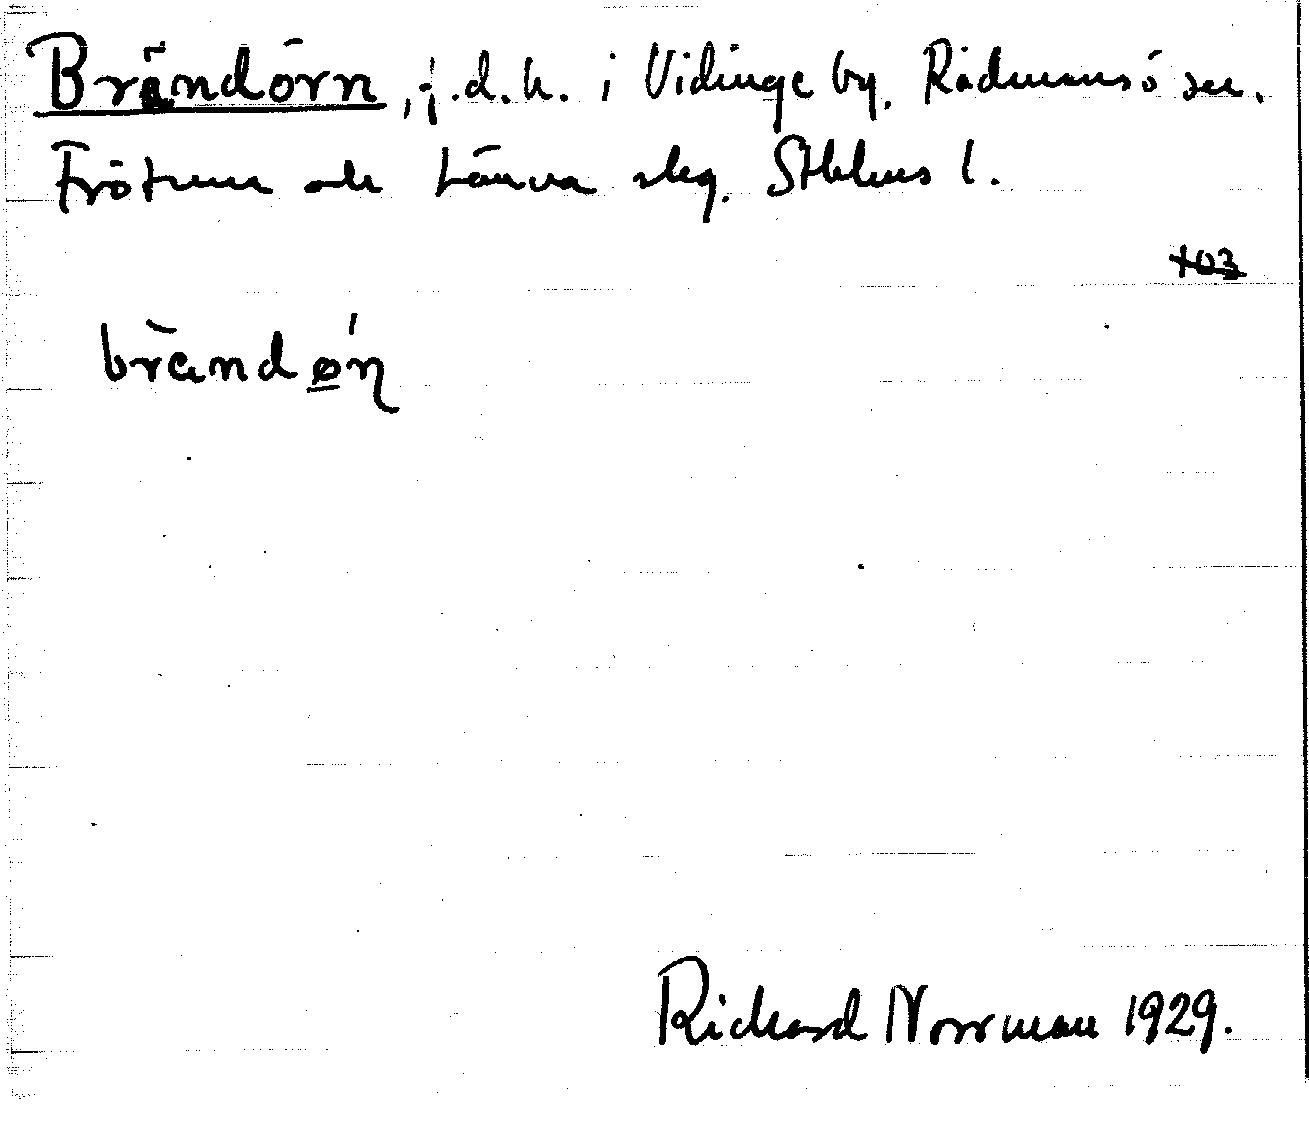 Brändörn, f.d.h. i Vidinge by, Rådmansö sn.
Frötuna och Länna skg. Sthlms l.
103
brändøn
Richard Norrman 1929.